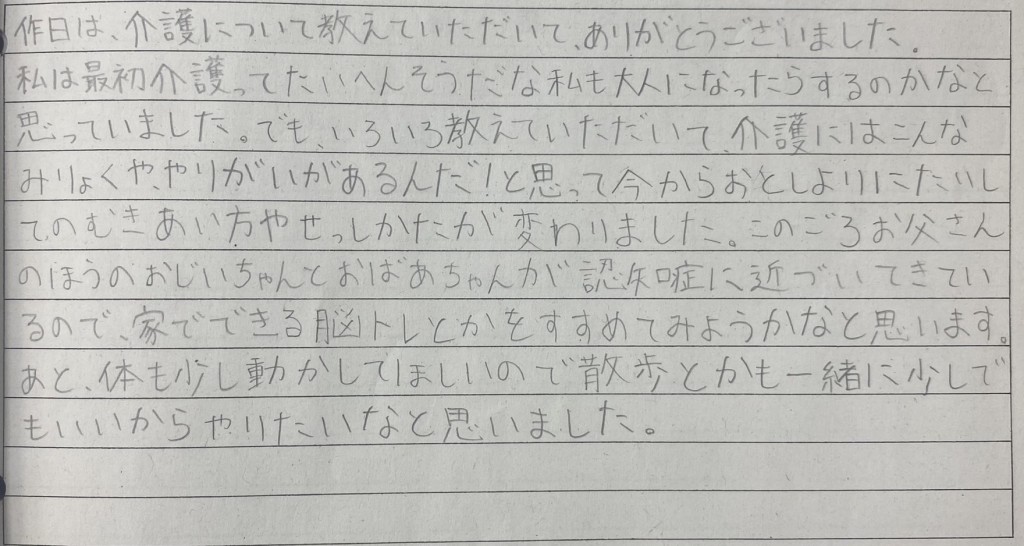 作日は、介護について教えていただいて、ありがとうございました。
私は最初介護ってたいへんそうだな私も大人になったらするのかなと
思っていました。でも、いろいろ教えていただいて、介護にはこんな
みりょくや、やりがいがあるんだ!と思って今からおとしよりにたいし
てのむきあい方やせっしかたが変わりました。このごろお父さん
のほうのおじいちゃんとおばあちゃんが認知症に近づいてきてい
るので、家でできる脳トレとかをすすめてみようかなと思います。
あと、体も少し動かしてほしいので散歩とかも一緒に少しで
もいいからやりたいなと思いました。